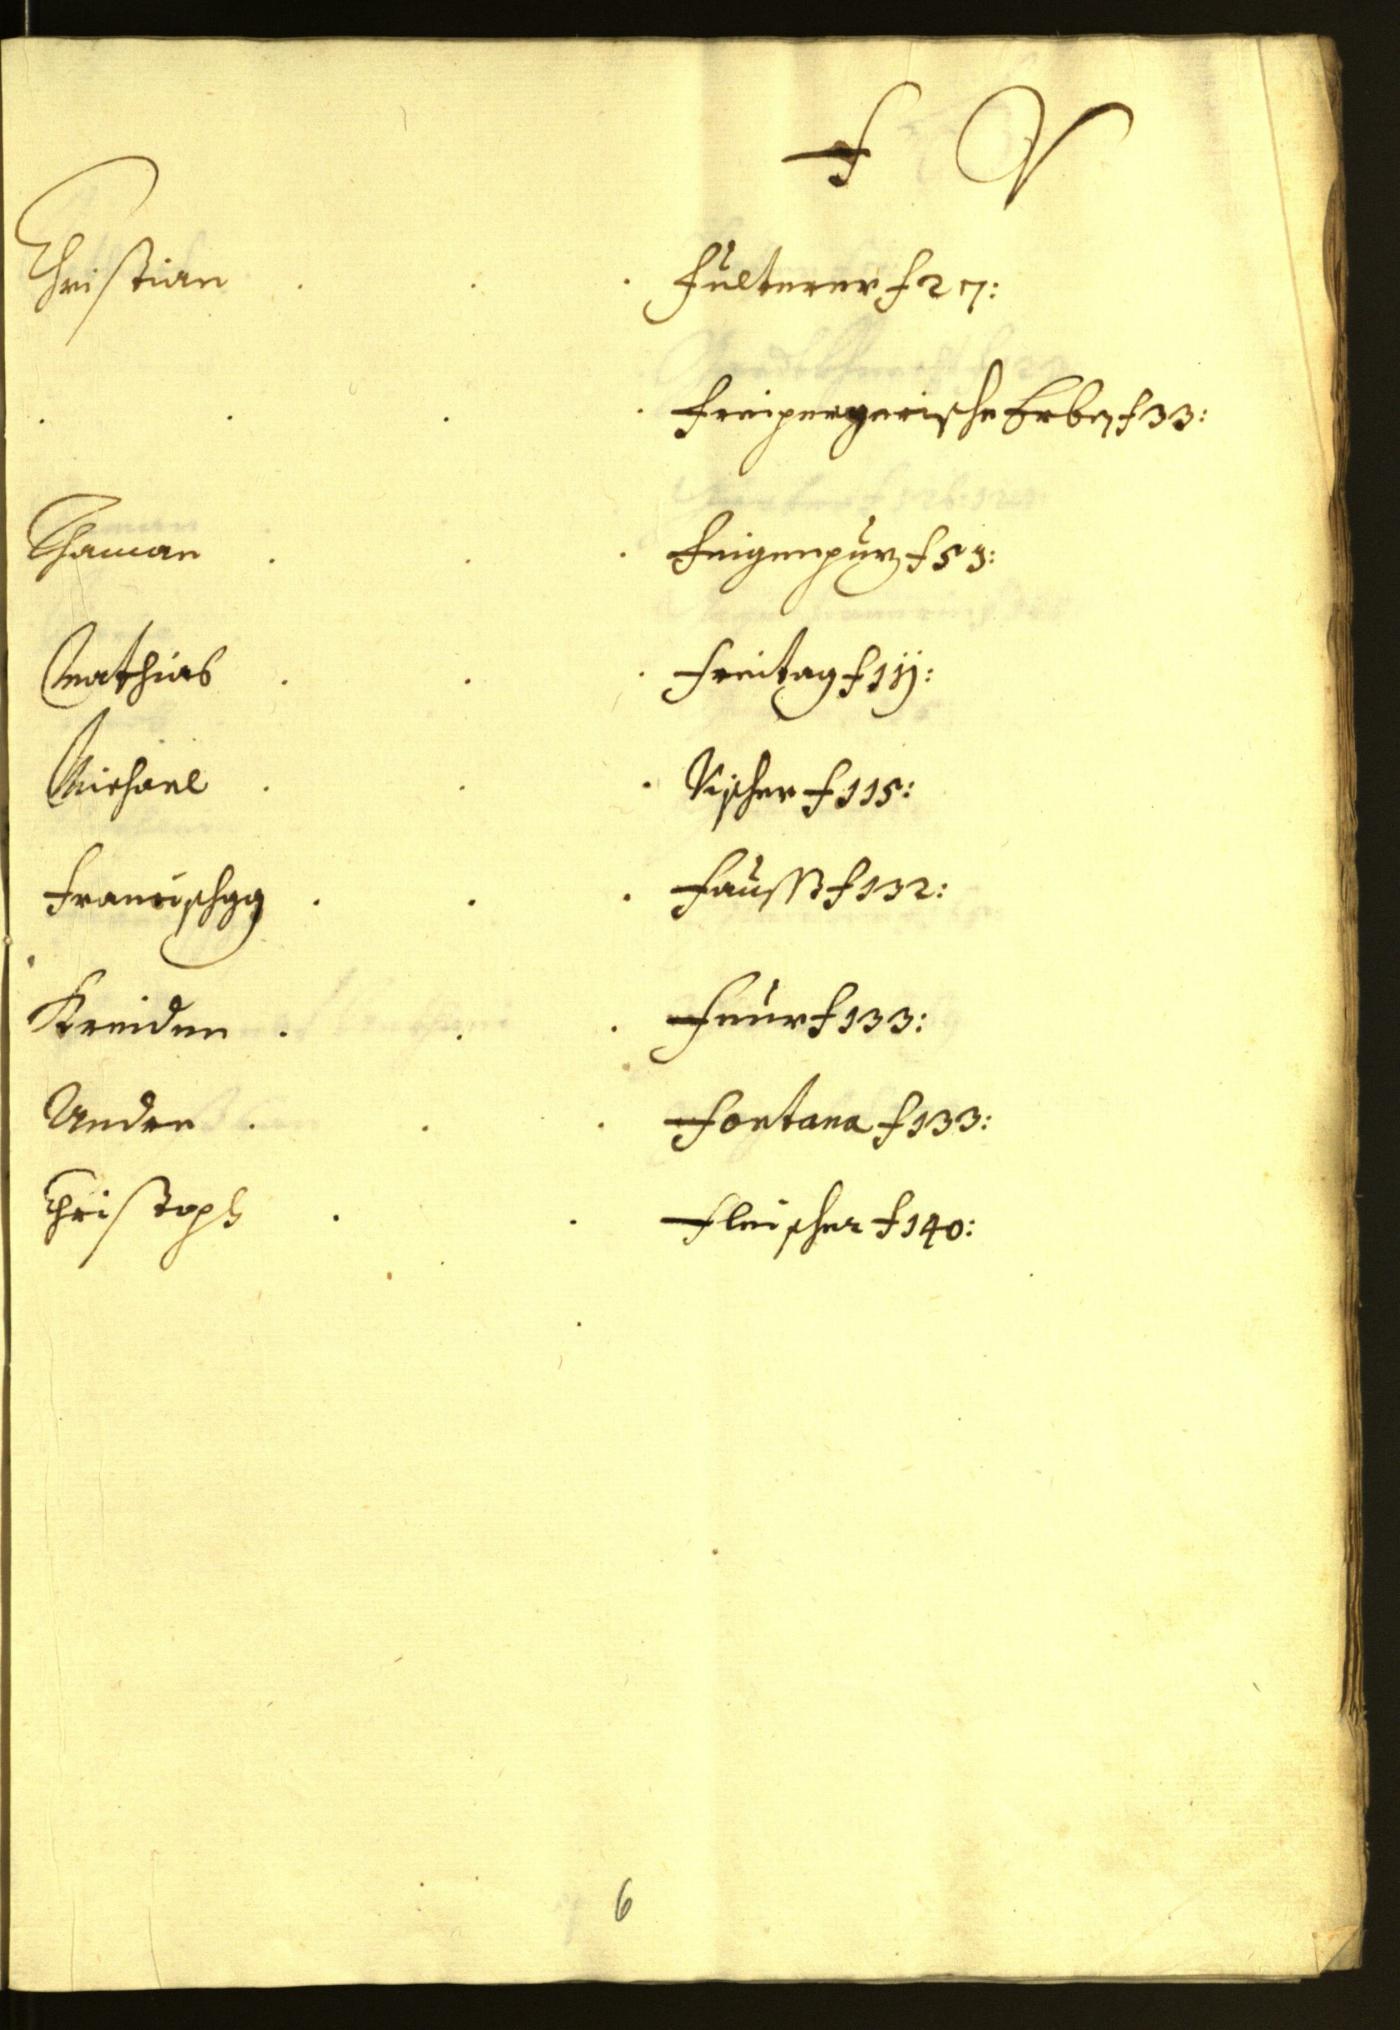 F V
Christian . . . Fulterer f 27:
. . . . Freipergerische Erben f 33:
Thaman . . . Feigenpuz f 59:
Mathias . . . Freitag f 111:
Michael . . . Vischer f 115:
Francischgg . . . Fauss f 132:
Kreiden . . . Feur f 133:
Andre . . . Fontana f 133:
Christoph . . Fleischer f 140:
6